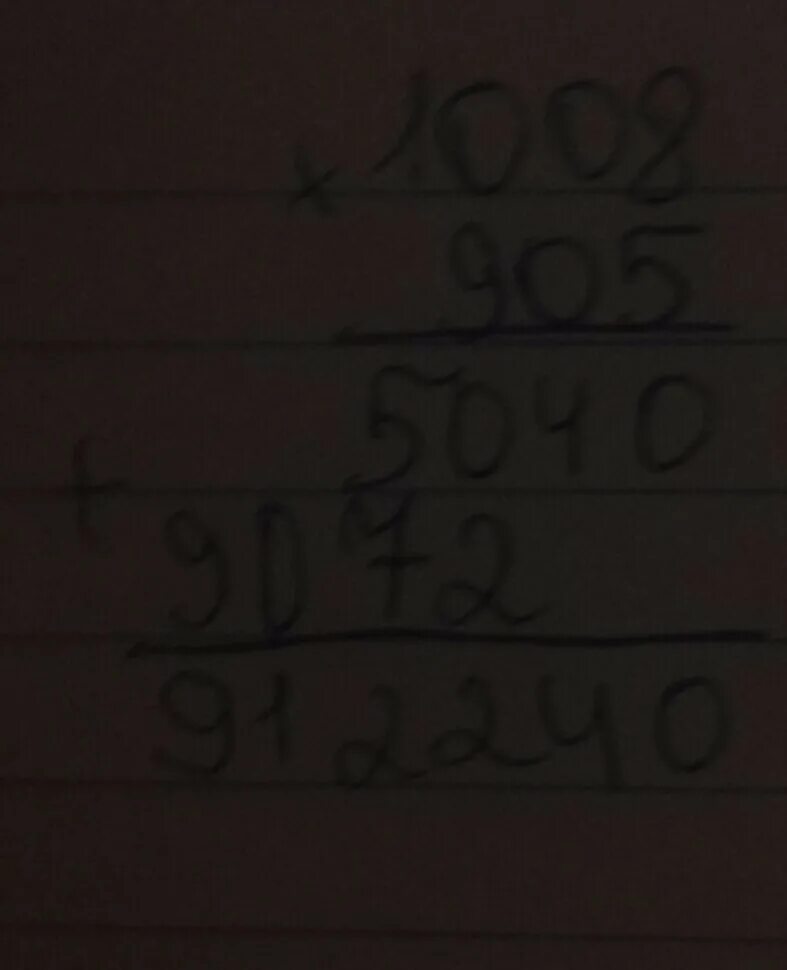 × 1008
905
5040
+
9072
912240